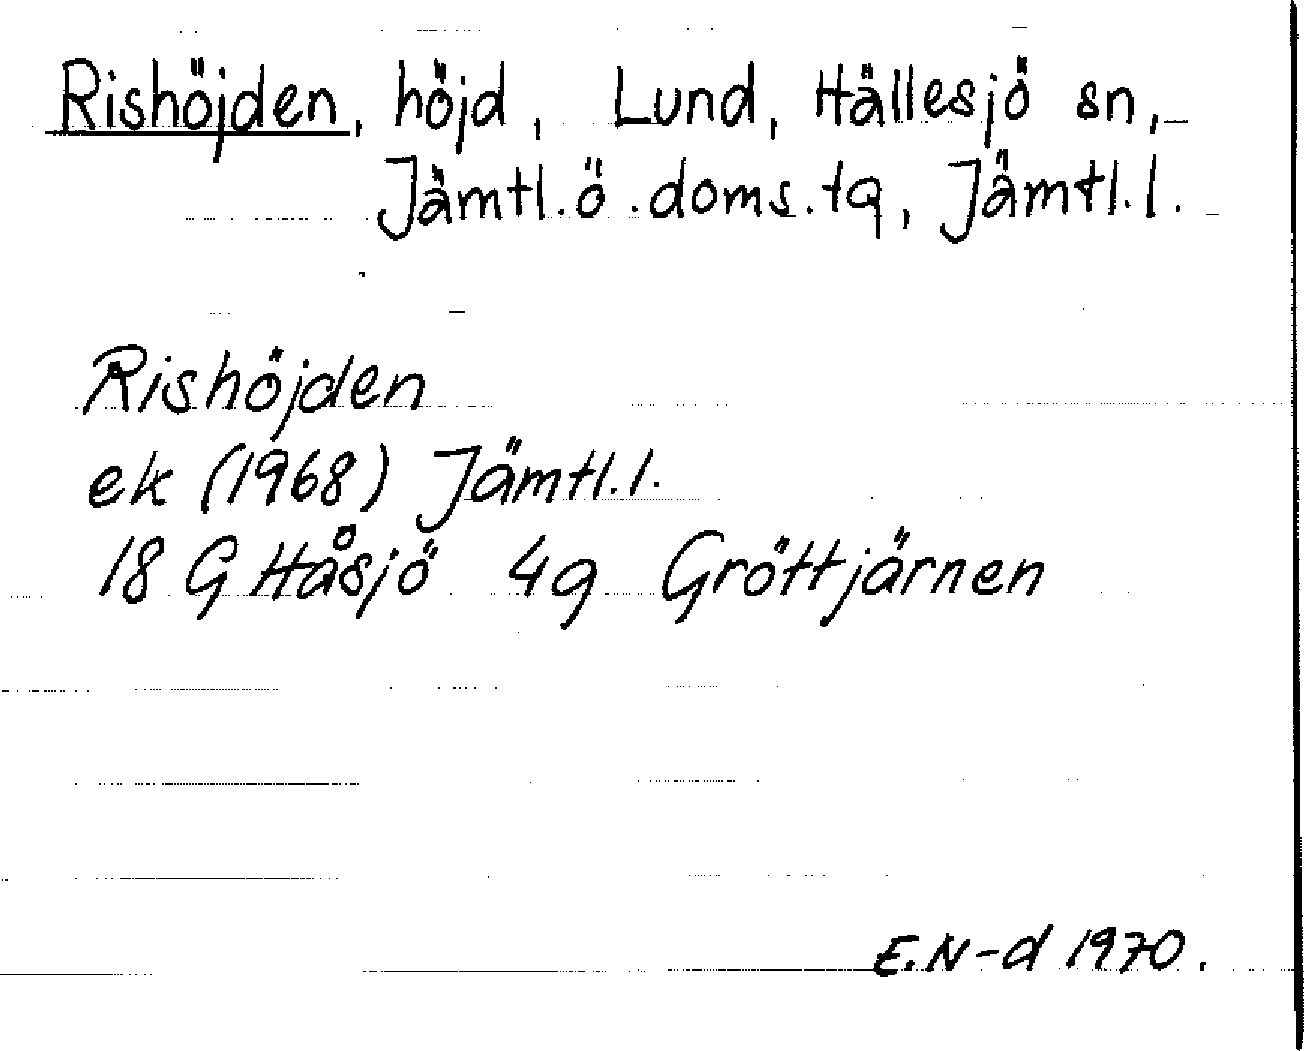 Rishöjden, höjd, Lund, Hällesjö sn,
Jämtl.ö.doms.tg, Jämtl.l.
Rishöjden
ek (1968) Jämtl.l.
18 G Håsjö 4g Gröttjärnen
E.N-d 1970.